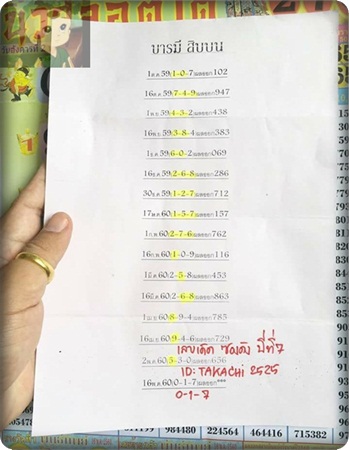 บารมี สิบบน
1ต.ค 59/1-0-7/ผลออก102
16ต.ค 59/7-4-9/ผลออก947
1พ.ย 59/4-3-2/ผลออก438
16พ.ย 59/3-8-4/ผลออก383
1ธ.ค 59/6-0-2/ผลออก069
16ธ.ค 59/2-6-8/ผลออก286
30ธ.ค 59/1-2-7/ผลออก712
17ม.ค 60/1-5-7/ผลออก157
1ก.พ 60/2-7-6/ผลออก762
16ก.พ 60/1-0-9/ผลออก116
1มี.ค 60/2-5-8/ผลออก453
16มี.ค 60/2-6-8/ผลออก863
1เม.ย 60/8-9-4/ผลออก785
16เม.ย 60/9-4-6/ผลออก729
2พ.ค 60/5-3-0/ผลออก656
16พ.ค 60/0-1-7/ผลออก***
เลขเด็ด ซองดัง ปีที่7
ID: TAKACHI 2525
0-1-7
984480 224564 464416 715382